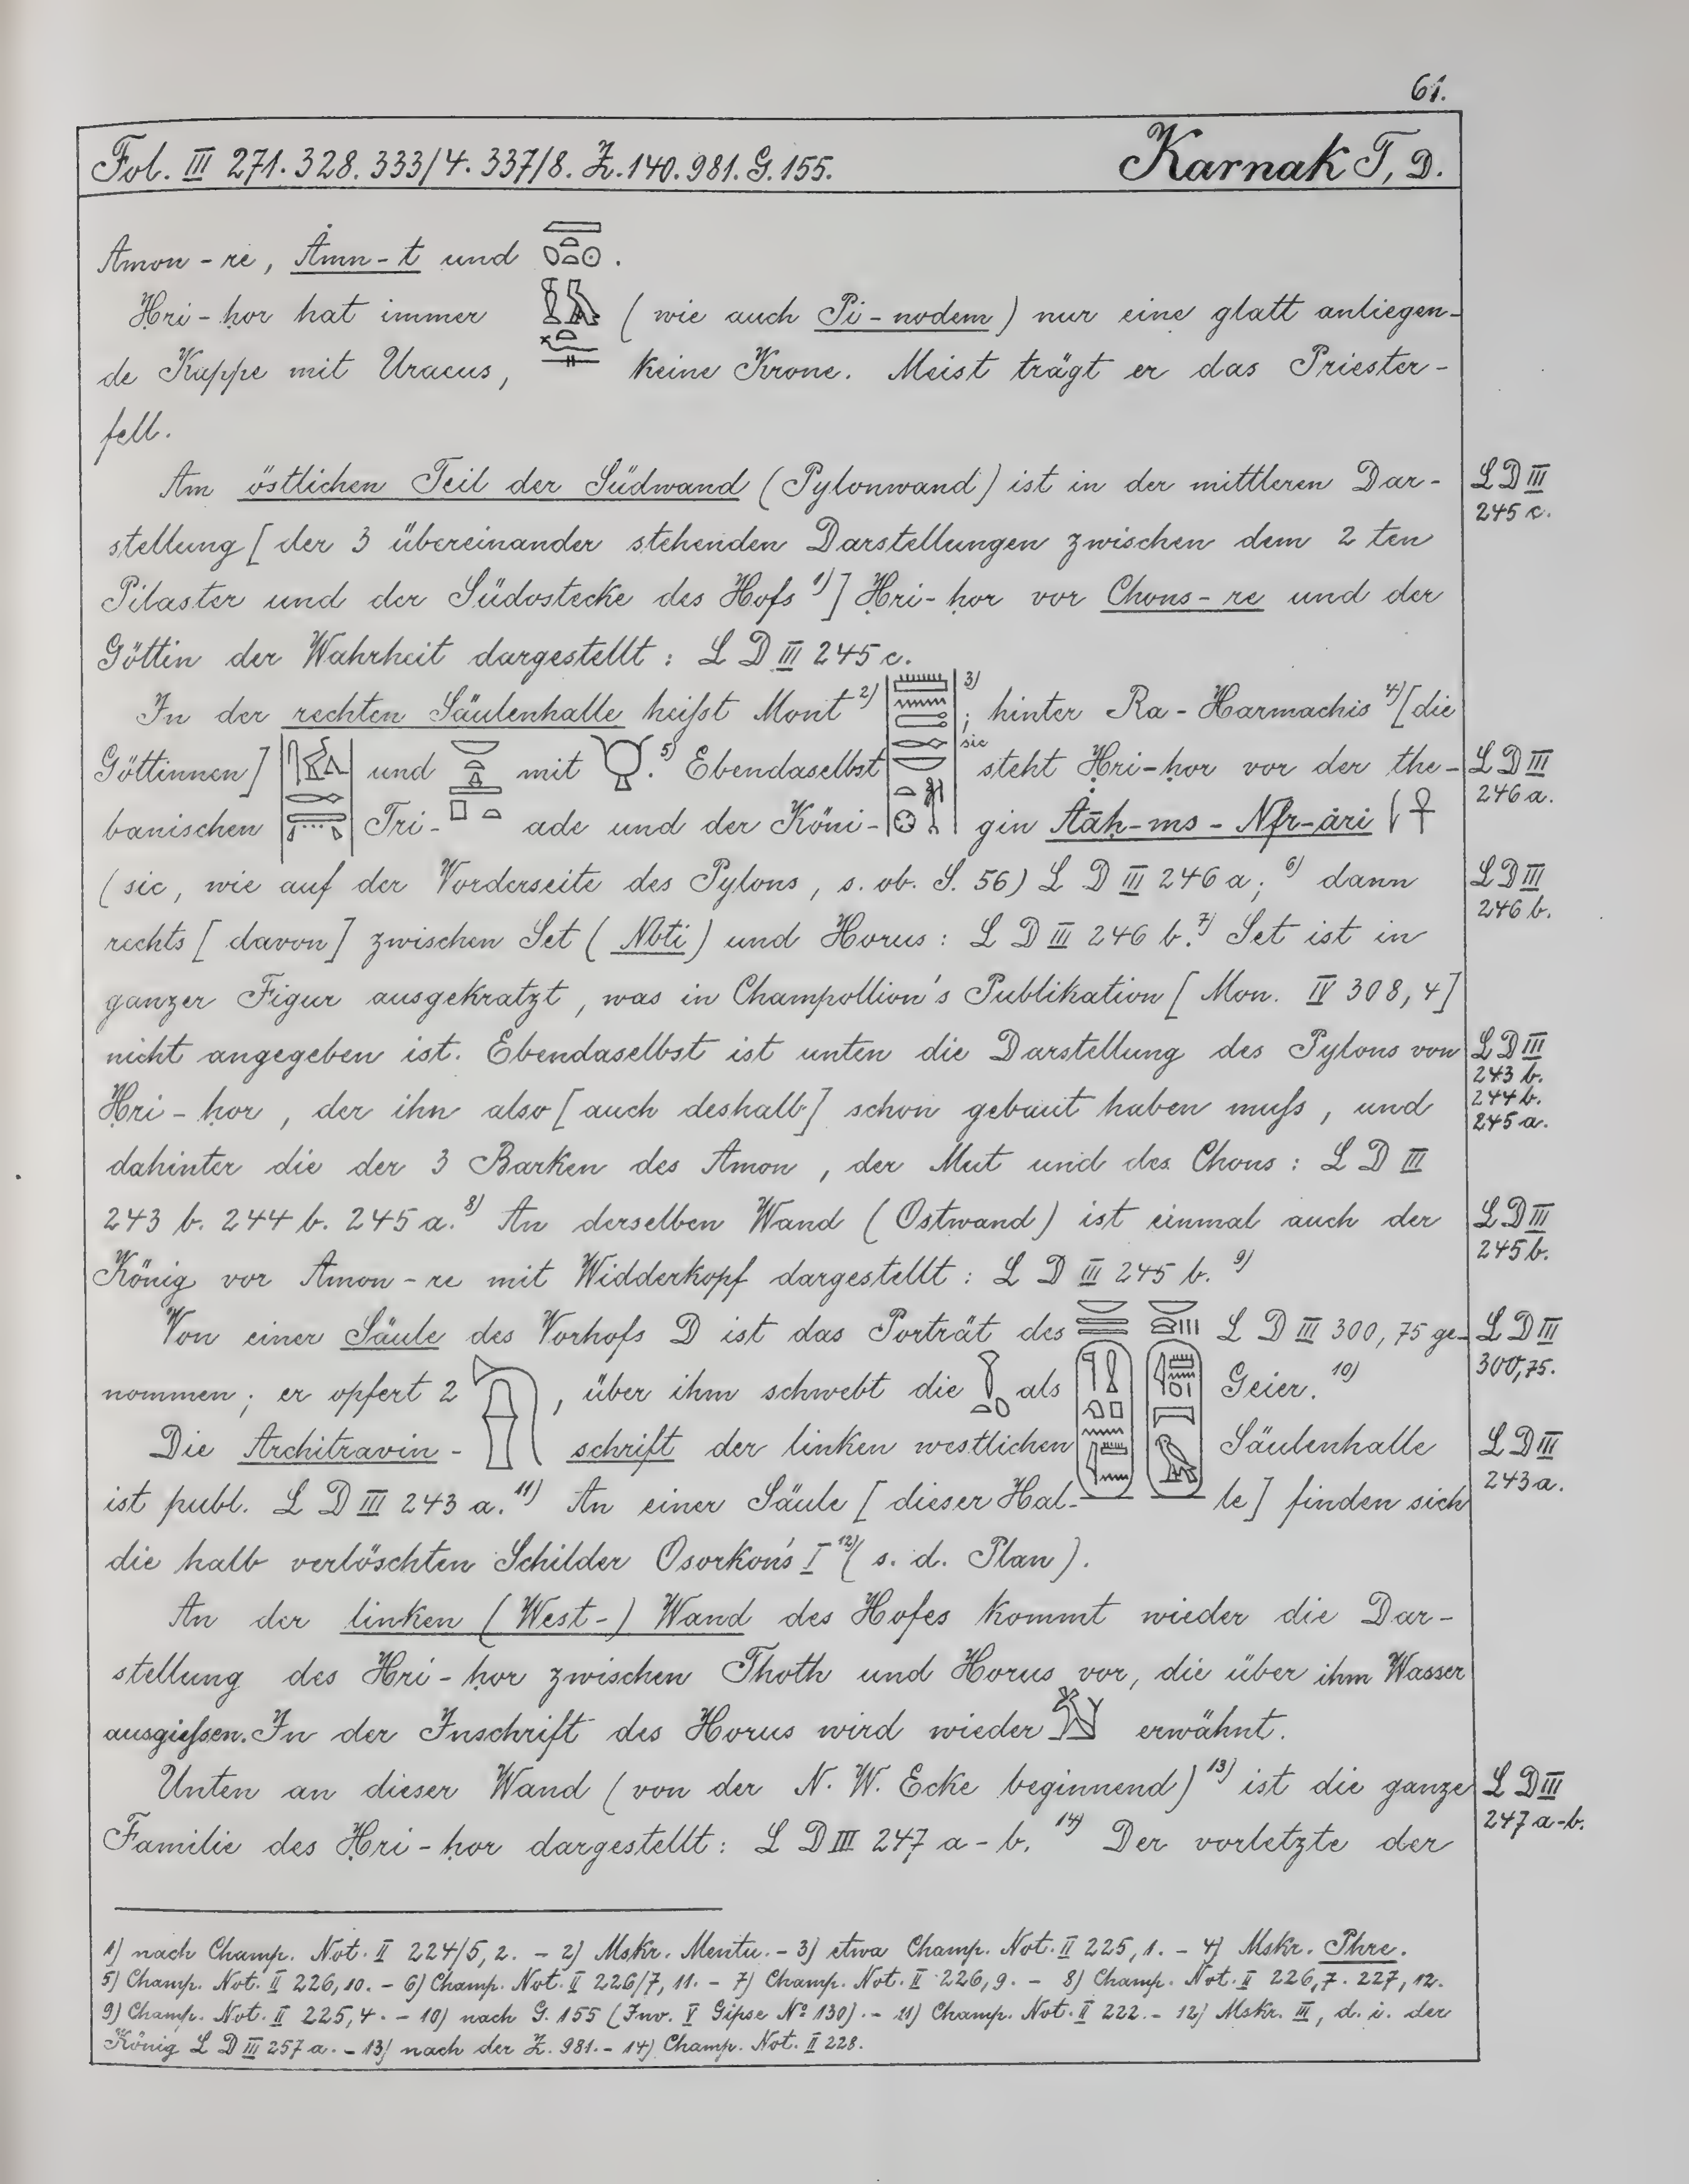 61.
Fol. III 271. 328. 333/4. 337/8. Z. 140. 981. G. 155. Karnak T, D.
Amon-re, Ȧmn-t und .
Ḥri-ḥor hat immer (wie auch Pi-nodem) nur eine glatt anliegen-
de Kappe mit Uraeus, keine Krone. Meist trägt er das Priester-
fell.
Am östlichen Teil der Südwand (Pylonwand) ist in der mittleren Dar- LD III
245 c.
stellung [der 3 übereinander stehenden Darstellungen zwischen dem 2 ten
Pilaster und der Südostecke des Hofs 1)] Ḥri-ḥor vor Chons-re und der
Göttin der Wahrheit dargestellt: L D III 245 c.
In der rechten Säulenhalle heißt Mont 2) 3) ; hinter Ra-Harmachis 4) [die
sic
Göttinnen] und mit . 5) Ebendaselbst steht Ḥri-ḥor vor der the- LD III
246 a.
banischen Tri- ade und der Köni- gin Ȧāḥ-ms-Nfr-ȧri
(sic, wie auf der Vorderseite des Pylons, s. ob. S. 56) L D III 246 a; 6) dann LD III
246 b.
rechts [davon] zwischen Set (Nbti) und Horus: L D III 246 b. 7) Set ist in
ganzer Figur ausgekratzt, was in Champollion's Publikation [Mon. IV 308, 4]
nicht angegeben ist. Ebendaselbst ist unten die Darstellung des Pylons von LD III
243 b.
Ḥri-ḥor, der ihn also [auch deshalb] schon gebaut haben muß, und 244 b.
245 a.
dahinter die der 3 Barken des Amon, der Mut und des Chons: L D III
243 b. 244 b. 245 a. 8) An derselben Wand (Ostwand) ist einmal auch der LD III
245 b.
König vor Amon-re mit Widderkopf dargestellt: L D III 245 b. 9)
Von einer Säule des Vorhofs D ist das Porträt des L D III 300, 75 ge- LD III
300, 75.
nommen; er opfert 2 , über ihm schwebt die als Geier. 10)
Die Architravin- schrift der linken westlichen Säulenhalle LD III
243 a.
ist publ. L D III 243 a. 11) An einer Säule [dieser Hal- le] finden sich
die halb verlöschten Schilder Osorkon's I 12) (s. d. Plan).
An der linken (West-) Wand des Hofes kommt wieder die Dar-
stellung des Ḥri-ḥor zwischen Thoth und Horus vor, die über ihm Wasser
ausgießen. In der Inschrift des Horus wird wieder erwähnt.
Unten an dieser Wand (von der N. W. Ecke beginnend) 13) ist die ganze LD III
247 a-b.
Familie des Ḥri-ḥor dargestellt: L D III 247 a-b. 14) Der vorletzte der
1) nach Champ. Not. II 224/5, 2. - 2) Mskr. Mentu. - 3) etwa Champ. Not. II 225, 1. - 4) Mskr. Phre.
5) Champ. Not. II 226, 10. - 6) Champ. Not. II 226/7, 11. - 7) Champ. Not. II 226, 9. - 8) Champ. Not. II 226, 7. 227, 12.
9) Champ. Not. II 225, 4. - 10) nach G. 155 (Inv. V Gipse No 130). - 11) Champ. Not. II 222. - 12) Mskr. III, d. i. der
König L D III 257 a. - 13) nach der Z. 981. - 14) Champ. Not. II 228.